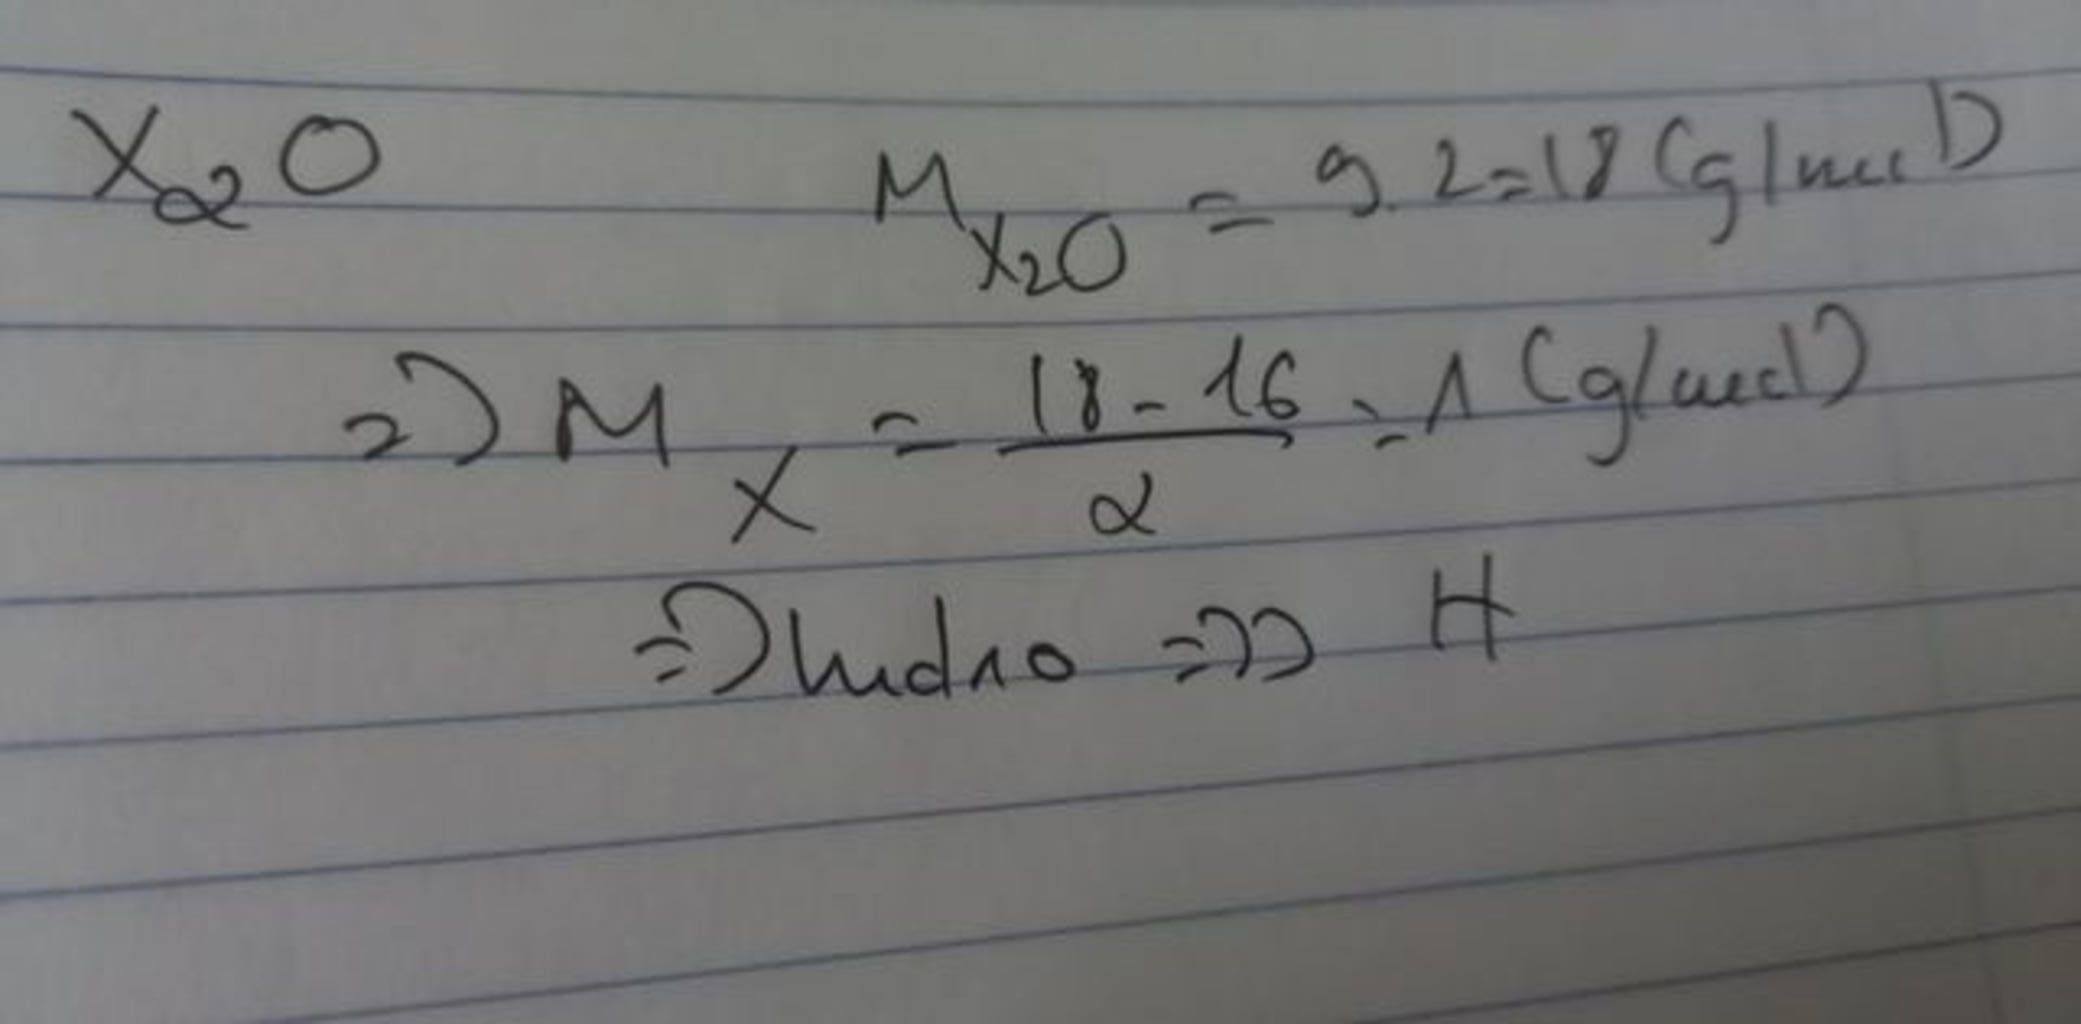 X₂O M_X₂O = 9.2=18 (g/mol)
=> M_X = (18-16)/2 = 1 (g/mol)
=> hidro =>> H